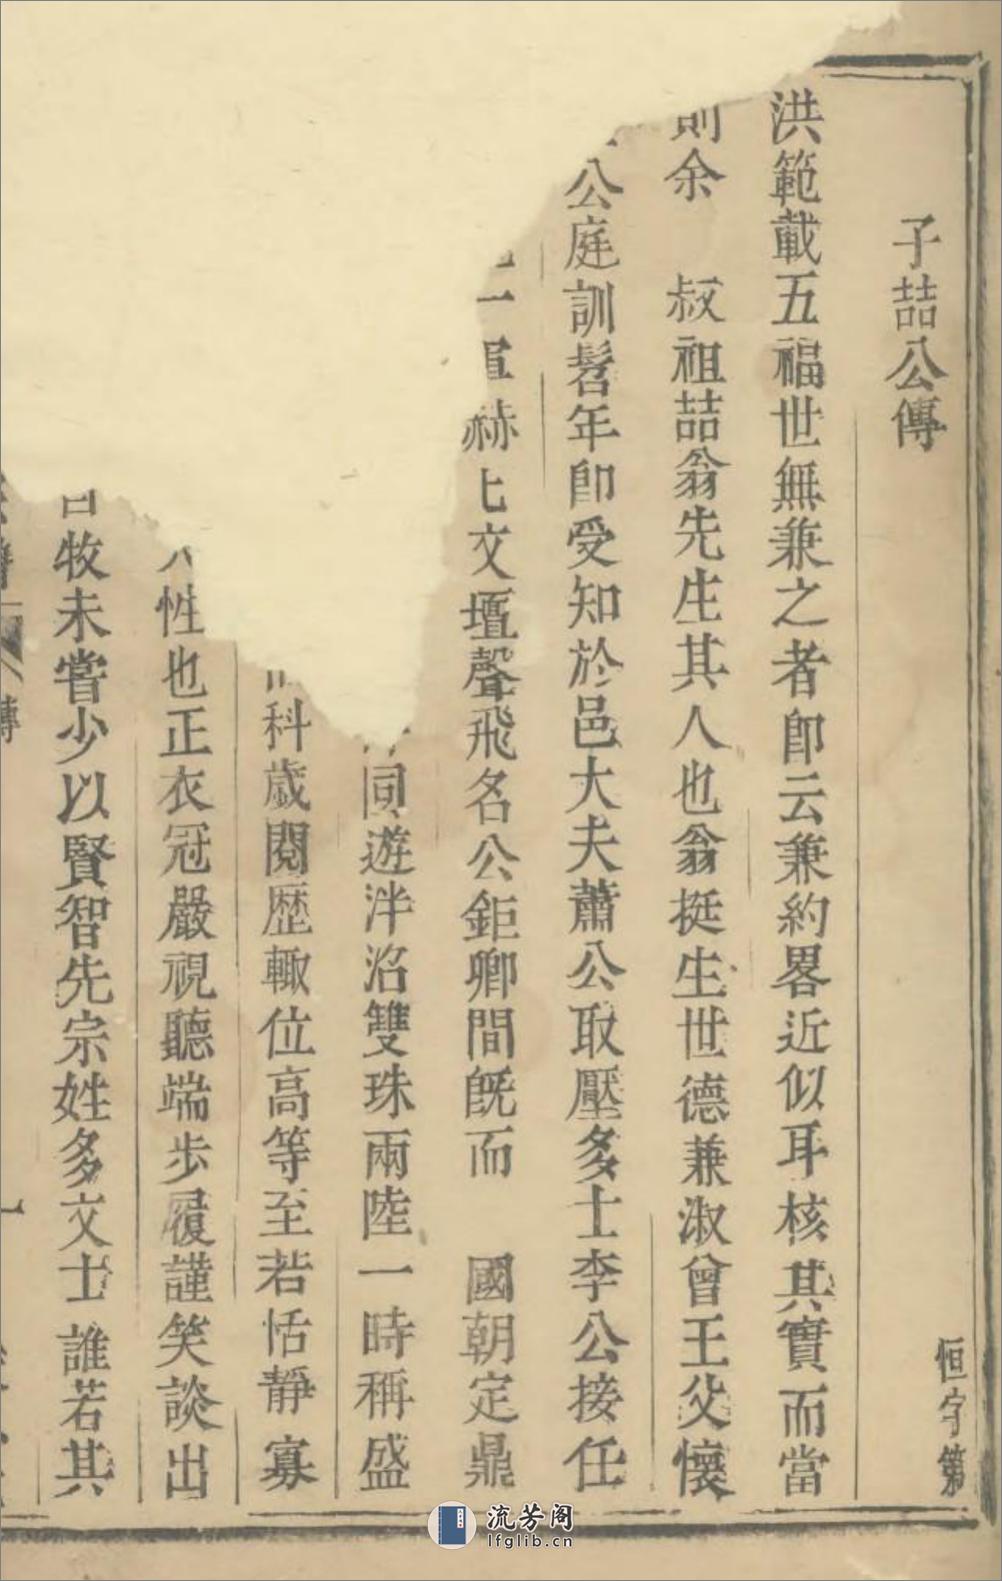 恒字第
子喆公傳
洪範載五福世無兼之者卽云兼約畧近似耳核其實而當
則余 叔祖喆翁先生其人也翁挺生世德兼淑曾王父懷
公庭訓髫年卽受知於邑大夫蕭公取壓多士李公接任
一軍赫七文壇聲飛名公鉅卿間旣而 國朝定鼎
同遊泮沼雙珠兩陸一時稱盛
科歲閱歷輙位高等至若恬靜寡
性也正衣冠嚴視聽端步履謹笑談出
牧未嘗少以賢智先宗姓多文士誰若其
譜
傳
一
流芳阁
lfglib.cn